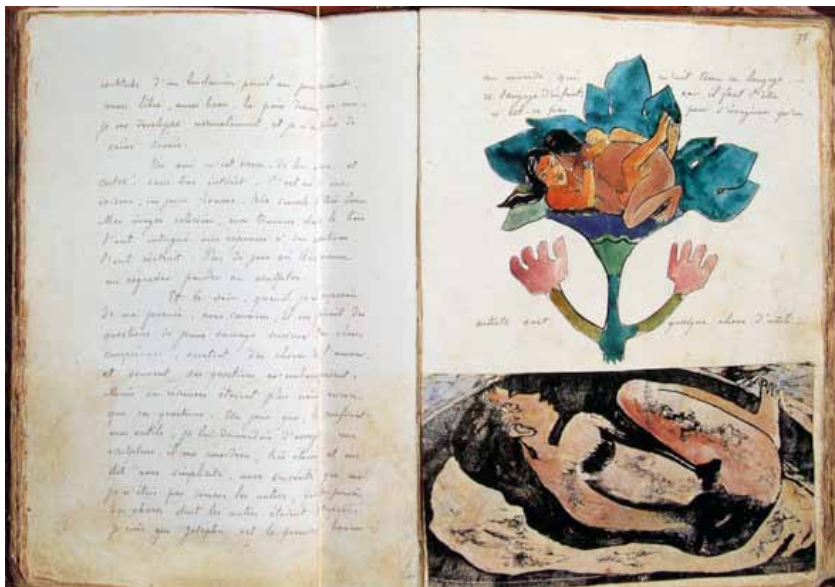 certitude d'un lendemain pareil au présent
aussi libre, aussi beau, la paix descend en moi,
je me développe normalement et je n'ai plus de
vains soucis.
Un ami m'est venu, de lui même et
certes! sans bas intérêt. C'est un de mes
voisins, un jeune homme, très simple et très beau.
Mes images coloriées, mes travaux dans le bois
l'ont intrigué, mes réponses à ses questions
l'ont instruit. Pas de jour où il ne vienne
me regarder peindre ou sculpter.
Et le soir, quand je me reposais
de ma journée, nous causions, il me faisait des
questions de jeune sauvage curieux des choses
européennes, surtout des choses de l'amour,
et souvent ses questions m'embarrassaient.
Mais ses réponses étaient plus naïves encore
que ses questions. Un jour que, lui confiant
mes outils, je lui demandais d'essayer une
sculpture, il me considéra, très étonné et me
dit avec simplicité, avec sincérité que moi
je n'étais pas comme les autres, que je pouvais
des choses dont les autres étaient incapables.
Je crois que Jotépha est le premier homme
au monde qui m'ait tenu ce langage -
ce langage d'enfant, car il faut l'être
n'est-ce pas pour s'imaginer qu'un
artiste soit quelque chose d'utile.